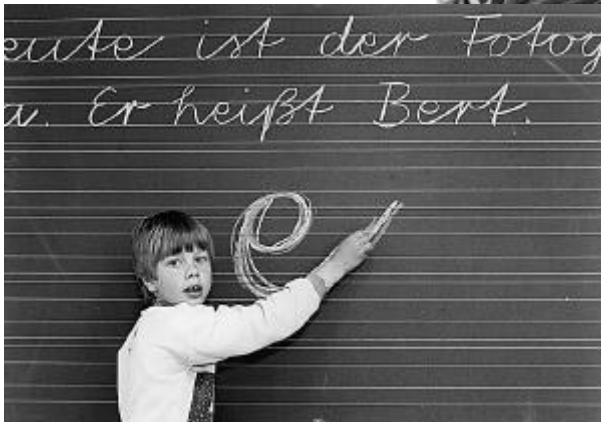 eute ist der Fotog
a. Er heißt Bert.
e